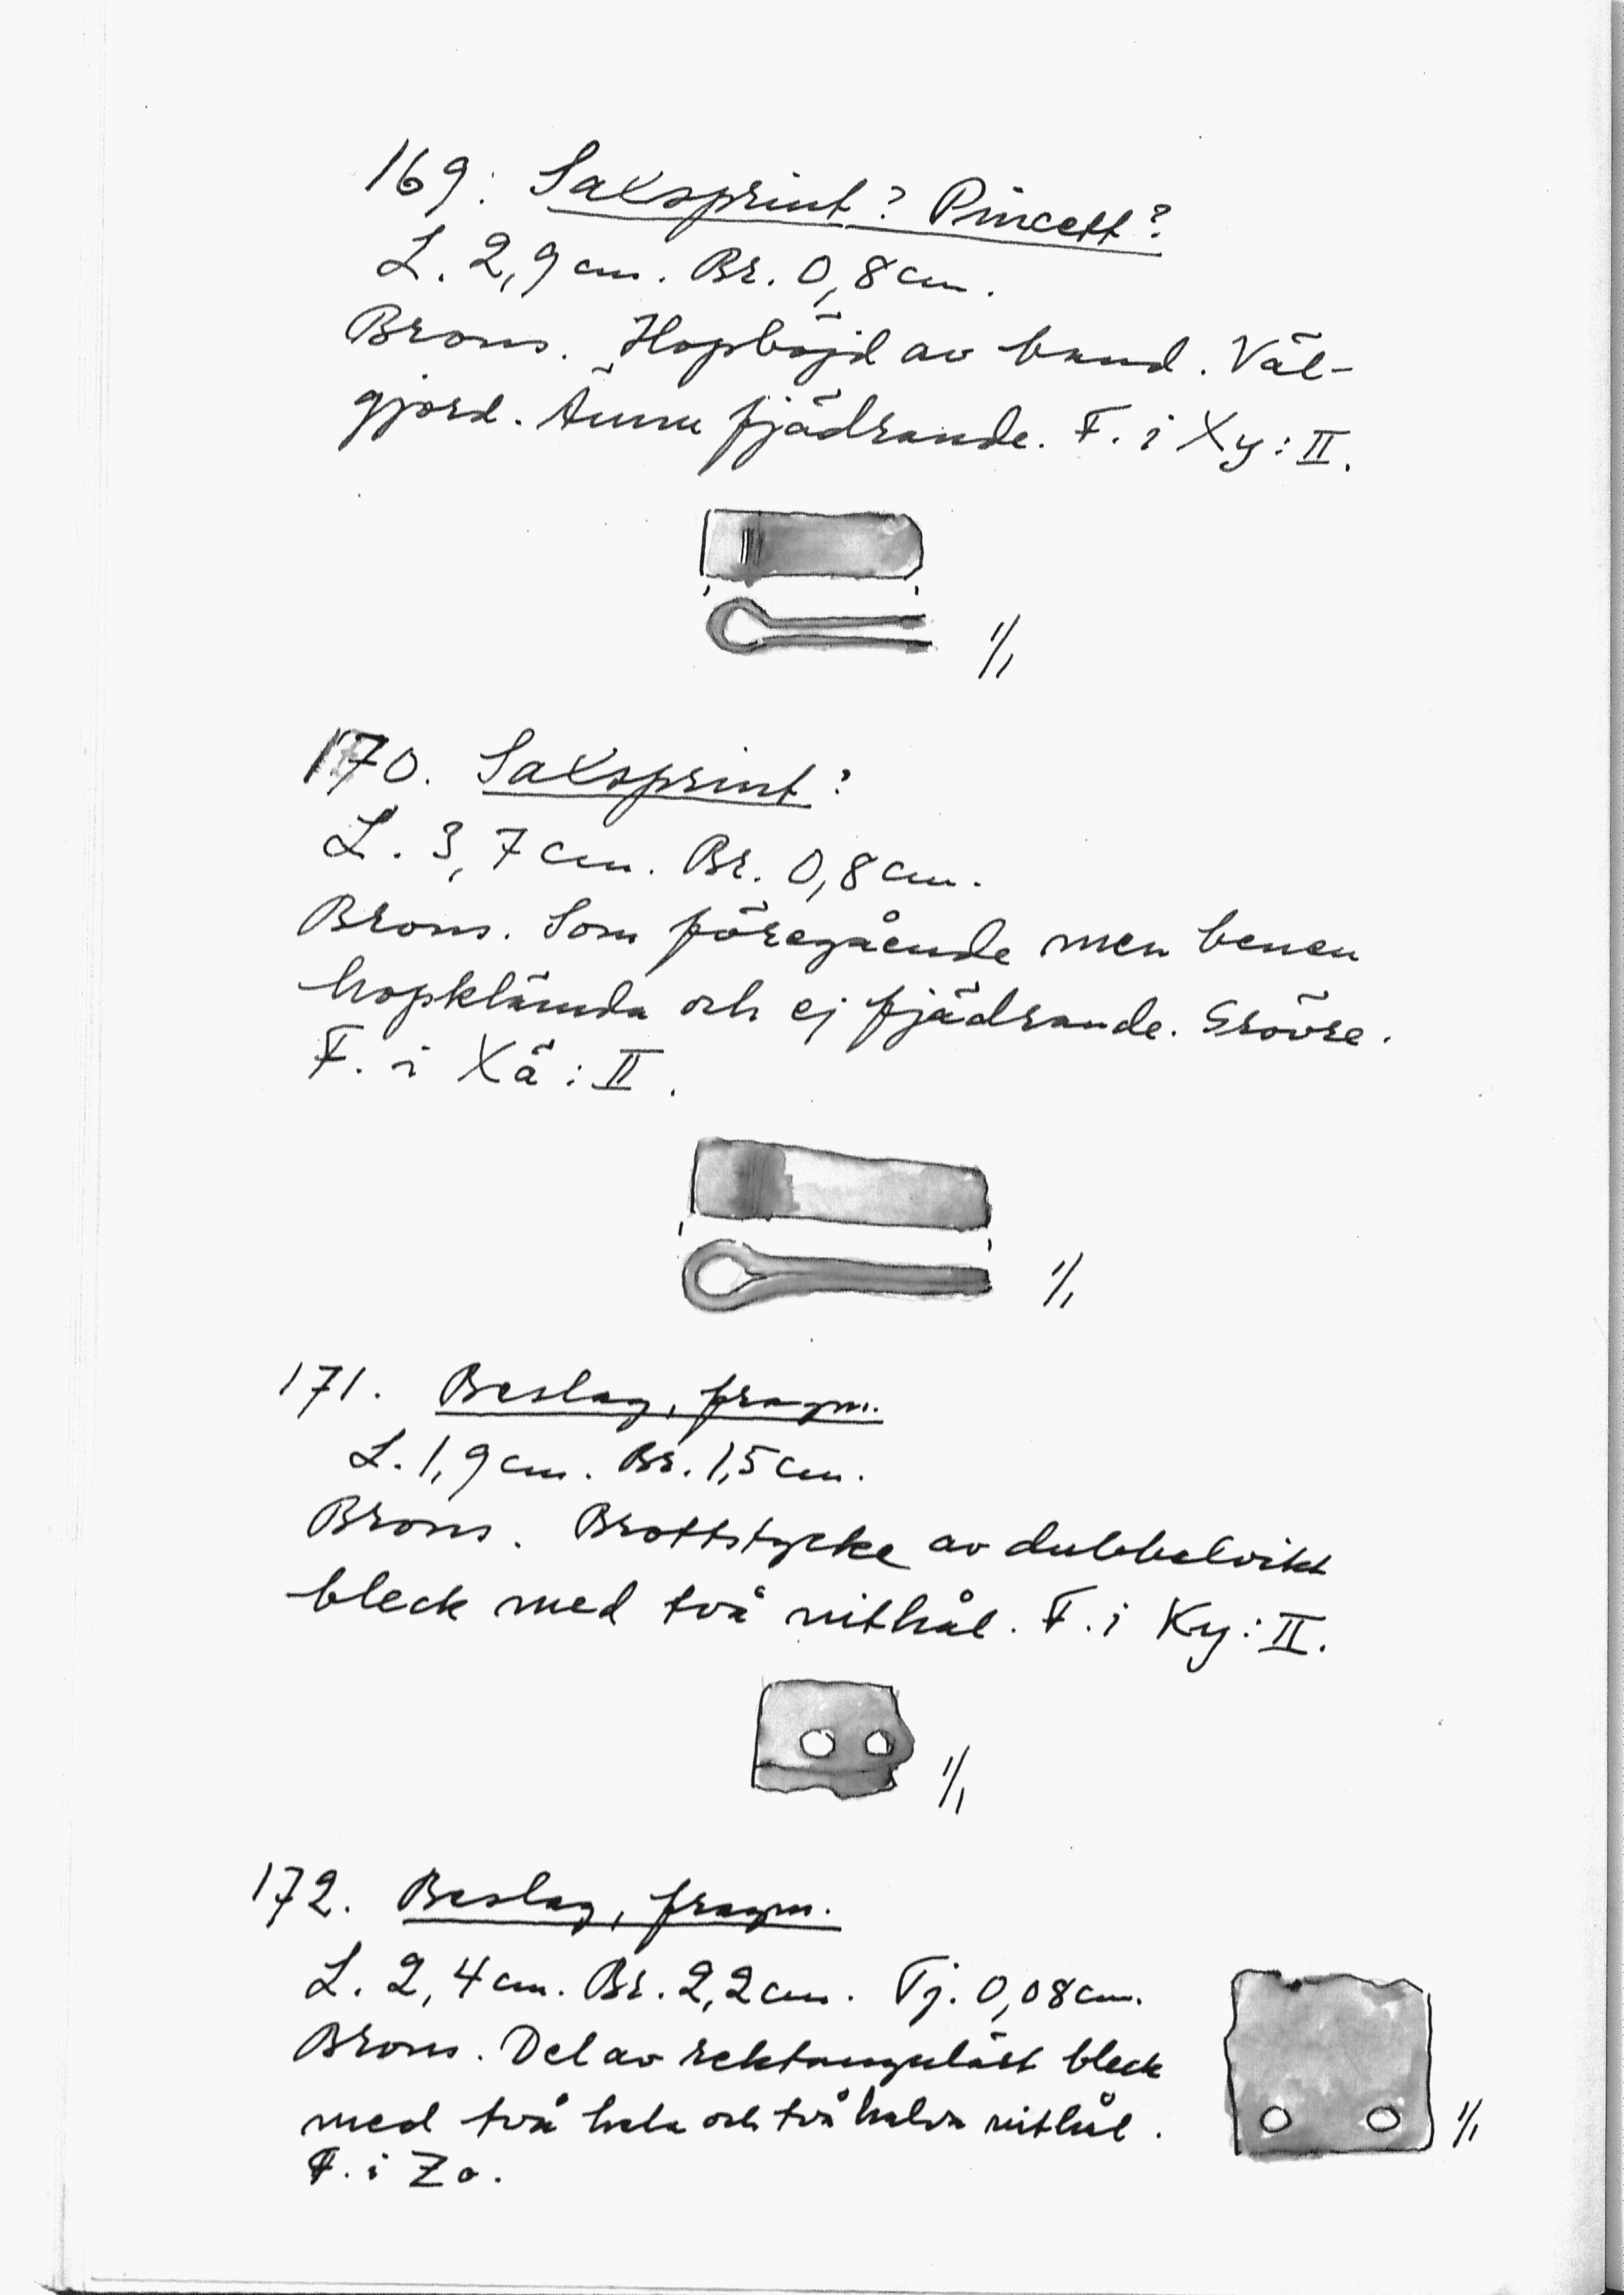 169. Saxsprint? Pincett?
L. 2,9 cm. Br. 0,8 cm.
Brons. Hopböjd av band. Väl-
gjord. Ännu fjädrande. F. i Xy:II.
1/1
170. Saxsprint?
L. 3,7 cm. Br. 0,8 cm.
Brons. Som föregående men benen
hopklämda och ej fjädrande. Grövre.
F. i Xä:II.
1/1
171. Beslag, fragm.
L. 1,9 cm. Br. 1,5 cm.
Brons. Brottstycke av dubbelvikt
bleck med två nithål. F. i Ky:II.
1/1
172. Beslag, fragm.
L. 2,4 cm. Br. 2,2 cm. Tj. 0,08 cm.
Brons. Del av rektangulärt bleck
med två hela och två halva nithål.
F. i Zo.
1/1